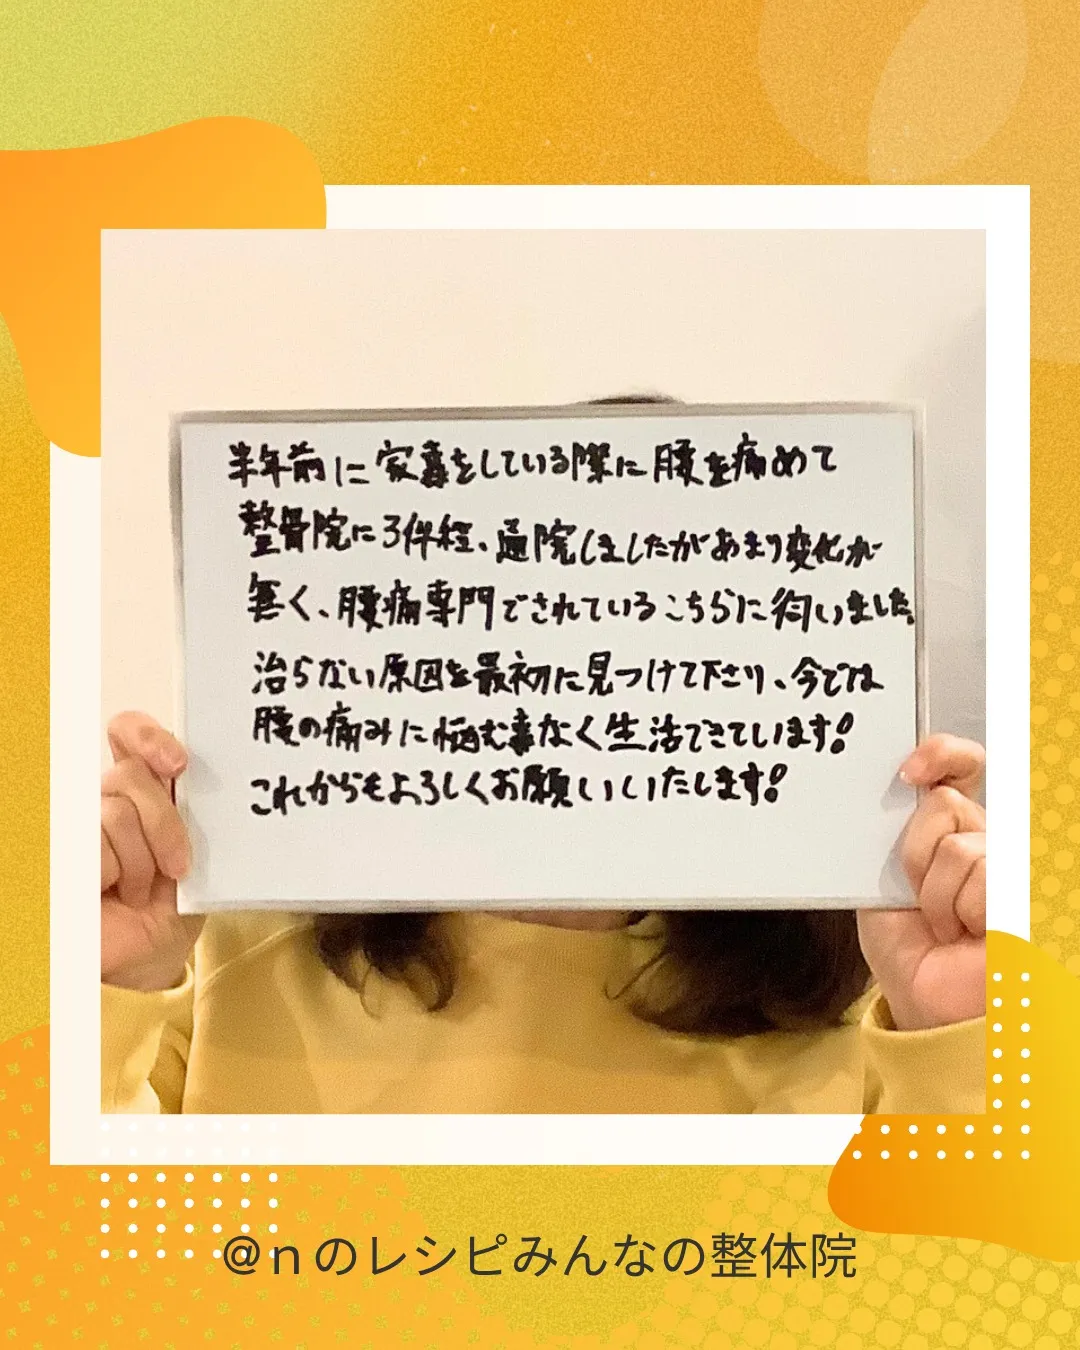 半年前に家事をしている際に腰を痛めて
整骨院に3件程、通院しましたがあまり変化が
無く、腰痛専門でされているこちらに伺いました。
治らない原因を最初に見つけて下さり、今では
腰の痛みに悩む事なく生活できています!
これからもよろしくお願いいたします!
@nのレシピみんなの整体院